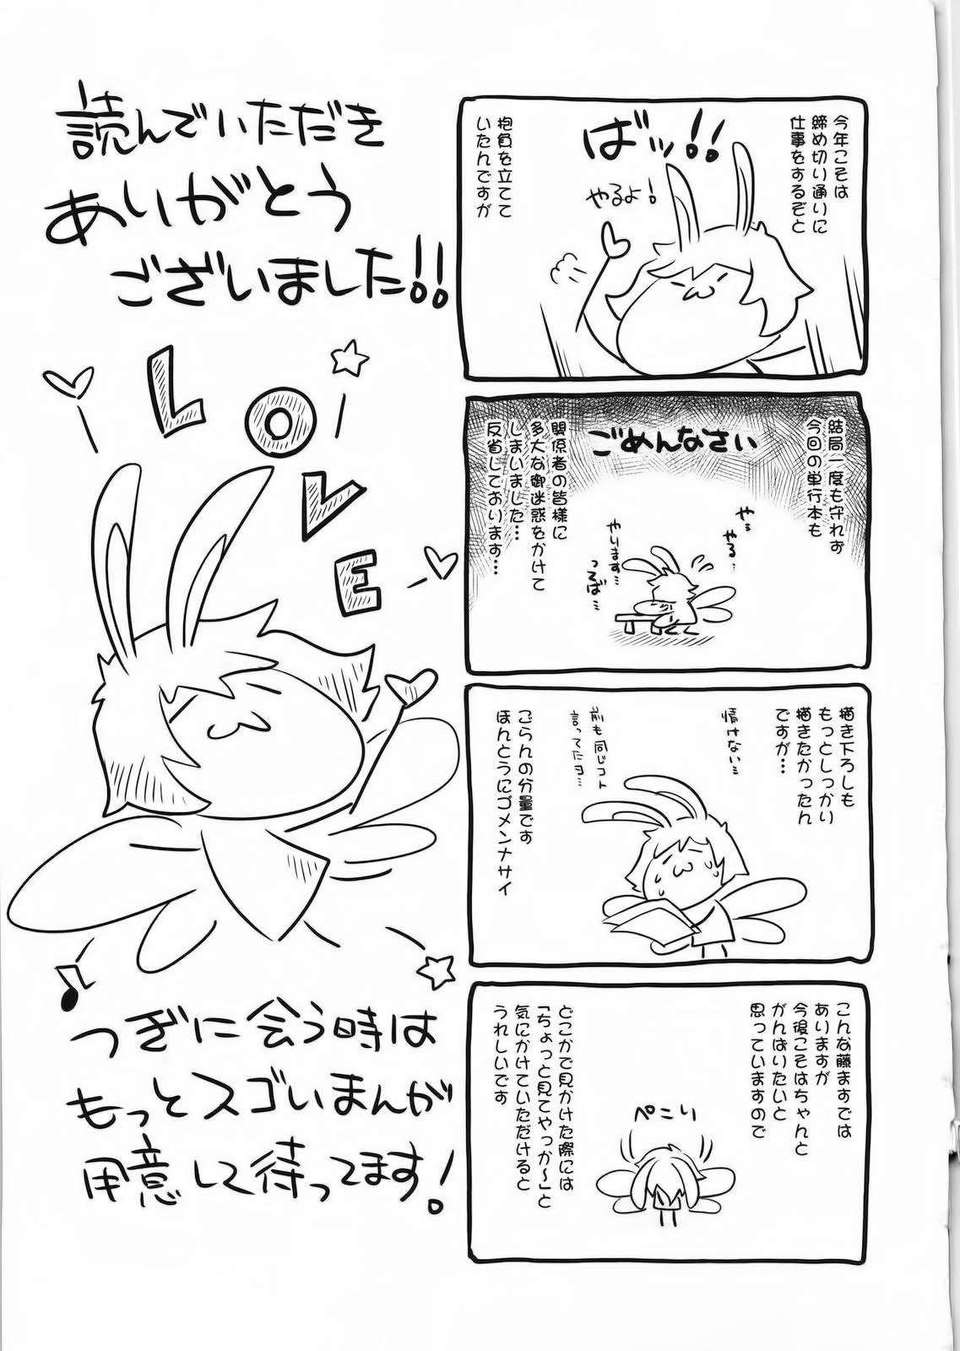 今年こそは
締め切り通りに
仕事をするぞと
ばッ!!
やるよ!
抱負を立てて
いたんですが
結局一度も守れず
今回の単行本も
ごめんなさい
関係者の皆様に
多大な御迷惑をかけて
しまいました…
反省しております…
やっ
やる…
やります…
っるば…
描き下ろしも
もっとしっかり
描きたかったん
ですが…
情けない…
前も同じコト
言ってたヨ…
ごらんの分量です
ほんとうにゴメンナサイ
こんな藤ますでは
ありますが
今後こそはちゃんと
がんばりたいと
思っていますので
ぺこり
どこかで見かけた際には
「ちょっと見てやっか〜」と
気にかけていただけると
うれしいです
読んでいただき
ありがとう
ございました!!
LOVE
つぎに会う時は
もっとスゴいまんが
用意して待ってます!